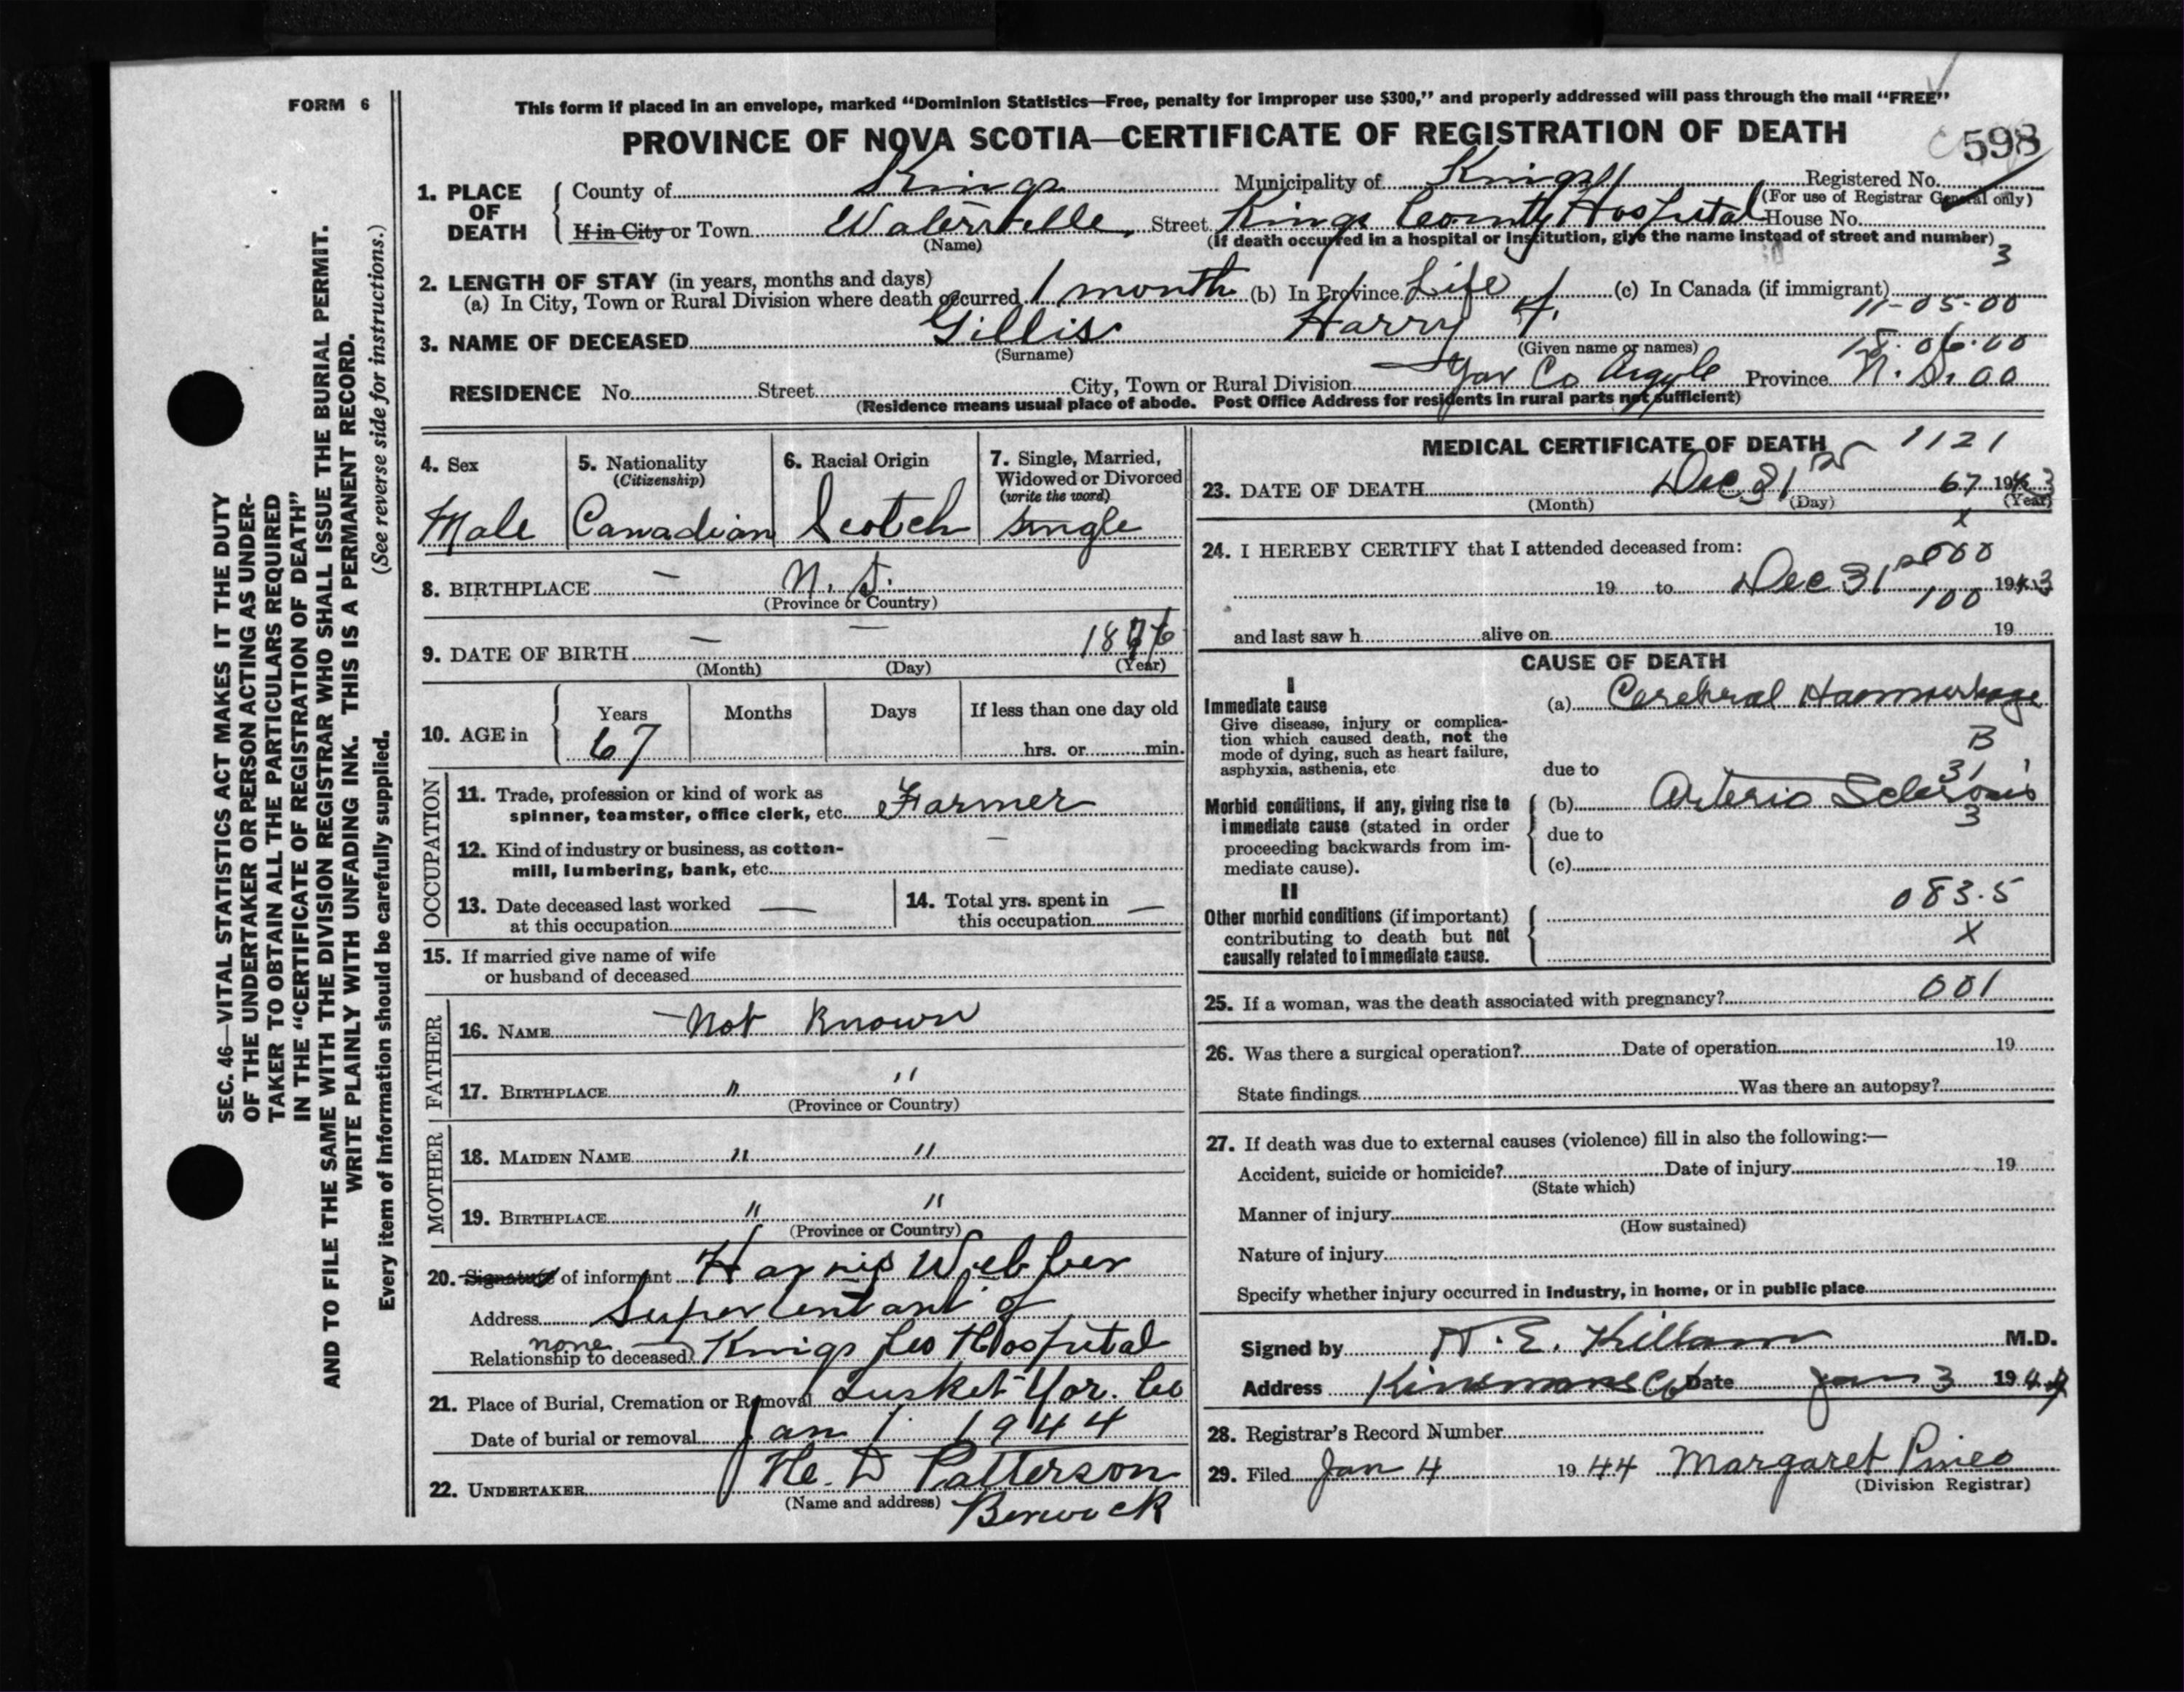 FORM 6
This form if placed in an envelope, marked “Dominion Statistics—Free, penalty for improper use $300,” and properly addressed will pass through the mail “FREE”
PROVINCE OF NOVA SCOTIA—CERTIFICATE OF REGISTRATION OF DEATH
598
1. PLACE OF DEATH County of Kings Municipality of Kings Registered No.
(For use of Registrar General only)
If in City or Town Waterville, Street Kings County Hospital House No.
(Name) (If death occurred in a hospital or institution, give the name instead of street and number)
3
2. LENGTH OF STAY (in years, months and days)
(a) In City, Town or Rural Division where death occurred 1 month (b) In Province Life (c) In Canada (if immigrant)
11-05-00
3. NAME OF DECEASED Gillis Harry F.
(Surname) (Given name or names)
18.06.00
RESIDENCE No. Street City, Town or Rural Division Yar Co Argyle Province N. S. 00
(Residence means usual place of abode. Post Office Address for residents in rural parts not sufficient)
4. Sex
Male
5. Nationality
(Citizenship)
Canadian
6. Racial Origin
Scotch
7. Single, Married,
Widowed or Divorced
(write the word)
Single
8. BIRTHPLACE — N. S.
(Province or Country)
9. DATE OF BIRTH — — 1876
(Month) (Day) (Year)
10. AGE in Years Months Days If less than one day old
67 hrs. or min.
OCCUPATION
11. Trade, profession or kind of work as
spinner, teamster, office clerk, etc. Farmer
12. Kind of industry or business, as cotton-
mill, lumbering, bank, etc. —
13. Date deceased last worked
at this occupation —
14. Total yrs. spent in
this occupation —
15. If married give name of wife
or husband of deceased
FATHER
16. NAME Not Known
17. BIRTHPLACE " "
(Province or Country)
MOTHER
18. MAIDEN NAME " "
19. BIRTHPLACE " "
(Province or Country)
20. Signature of informant Harris Webber
Address Supertentant of
Relationship to deceased none Kings Co Hospital
21. Place of Burial, Cremation or Removal Tusket Yar. Co
Date of burial or removal Jan 1 1944
22. UNDERTAKER He. D Patterson
(Name and address) Berwick
MEDICAL CERTIFICATE OF DEATH
1121
23. DATE OF DEATH Dec 31 67 1943
(Month) (Day) (Year)
x
24. I HEREBY CERTIFY that I attended deceased from:
000
19 to Dec 31 1943
100
and last saw h alive on 19
CAUSE OF DEATH
I
Immediate cause
Give disease, injury or complica-
tion which caused death, not the
mode of dying, such as heart failure,
asphyxia, asthenia, etc
(a) Cerebral Haemorrhage
B
due to
31
Morbid conditions, if any, giving rise to
immediate cause (stated in order
proceeding backwards from im-
mediate cause).
(b) Arterio Sclerosis
3
due to
(c)
II
Other morbid conditions (if important)
contributing to death but not
causally related to immediate cause.
083.5
X
25. If a woman, was the death associated with pregnancy? 001
26. Was there a surgical operation? Date of operation 19
State findings Was there an autopsy?
27. If death was due to external causes (violence) fill in also the following:—
Accident, suicide or homicide? Date of injury 19
(State which)
Manner of injury
(How sustained)
Nature of injury
Specify whether injury occurred in industry, in home, or in public place
Signed by H. E. Killam M.D.
Address Kinsmans Co Date Jan 3 1944
28. Registrar's Record Number
29. Filed Jan 4 1944 Margaret Pineo
(Division Registrar)
SEC. 46—VITAL STATISTICS ACT MAKES IT THE DUTY
OF THE UNDERTAKER OR PERSON ACTING AS UNDER-
TAKER TO OBTAIN ALL THE PARTICULARS REQUIRED
IN THE “CERTIFICATE OF REGISTRATION OF DEATH”
AND TO FILE THE SAME WITH THE DIVISION REGISTRAR WHO SHALL ISSUE THE BURIAL PERMIT.
WRITE PLAINLY WITH UNFADING INK. THIS IS A PERMANENT RECORD.
(See reverse side for instructions.)
Every item of information should be carefully supplied.